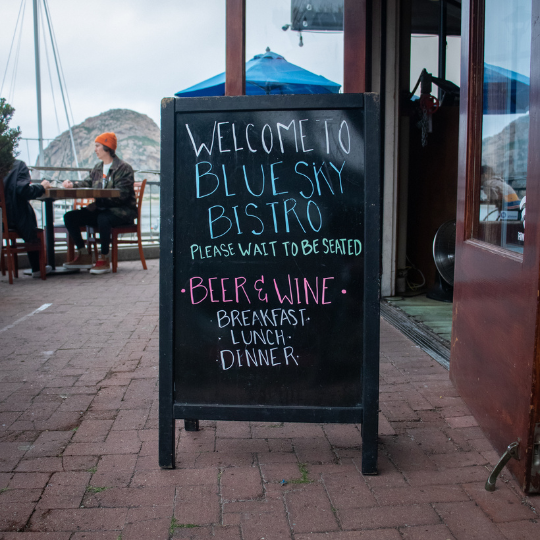 WELCOME TO
BLUE SKY
BISTRO
PLEASE WAIT TO BE SEATED
• BEER & WINE •
• BREAKFAST •
• LUNCH •
• DINNER •